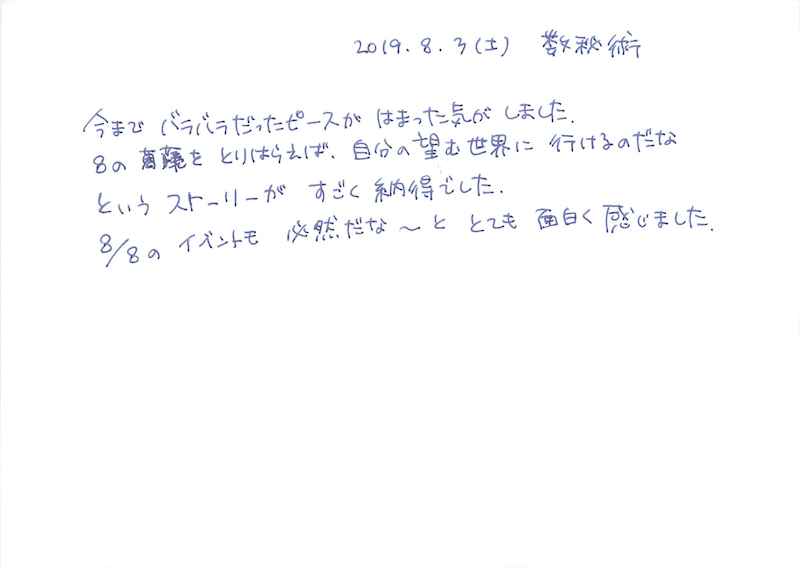 2019.8.3(土) 数秘術
今まで バラバラだったピースが はまった気がしました.
8の を とりはらえば、自分の望む世界に 行けるのだな
という ストーリーが すごく 納得でした.
8/8の イベントも 必然だな〜と とても 面白く 感じました.